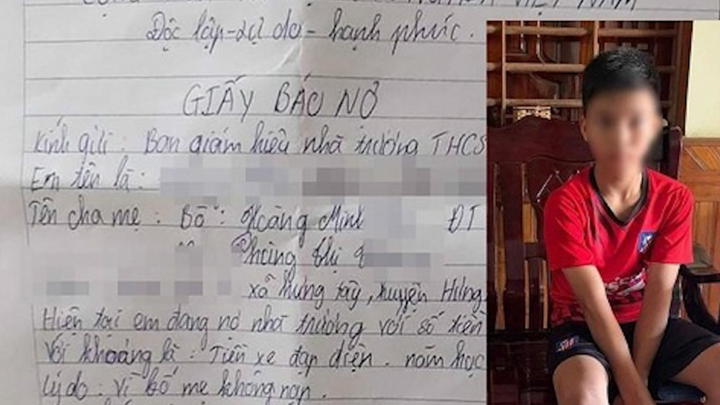 Độc lập - tự do - hạnh phúc.
GIẤY BÁO NỢ
Kính gửi: Ban giám hiệu nhà trường THCS
Em tên là:
Tên cha mẹ: Bố: Hoàng Minh ĐT
Phùng thị
xã hưng tây, huyện Hưng
Hiện tại em đang nợ nhà trường với số tiền
Với khoảng là: Tiền xe đạp điện. năm học
Lý do: Vì bố mẹ không nạp.